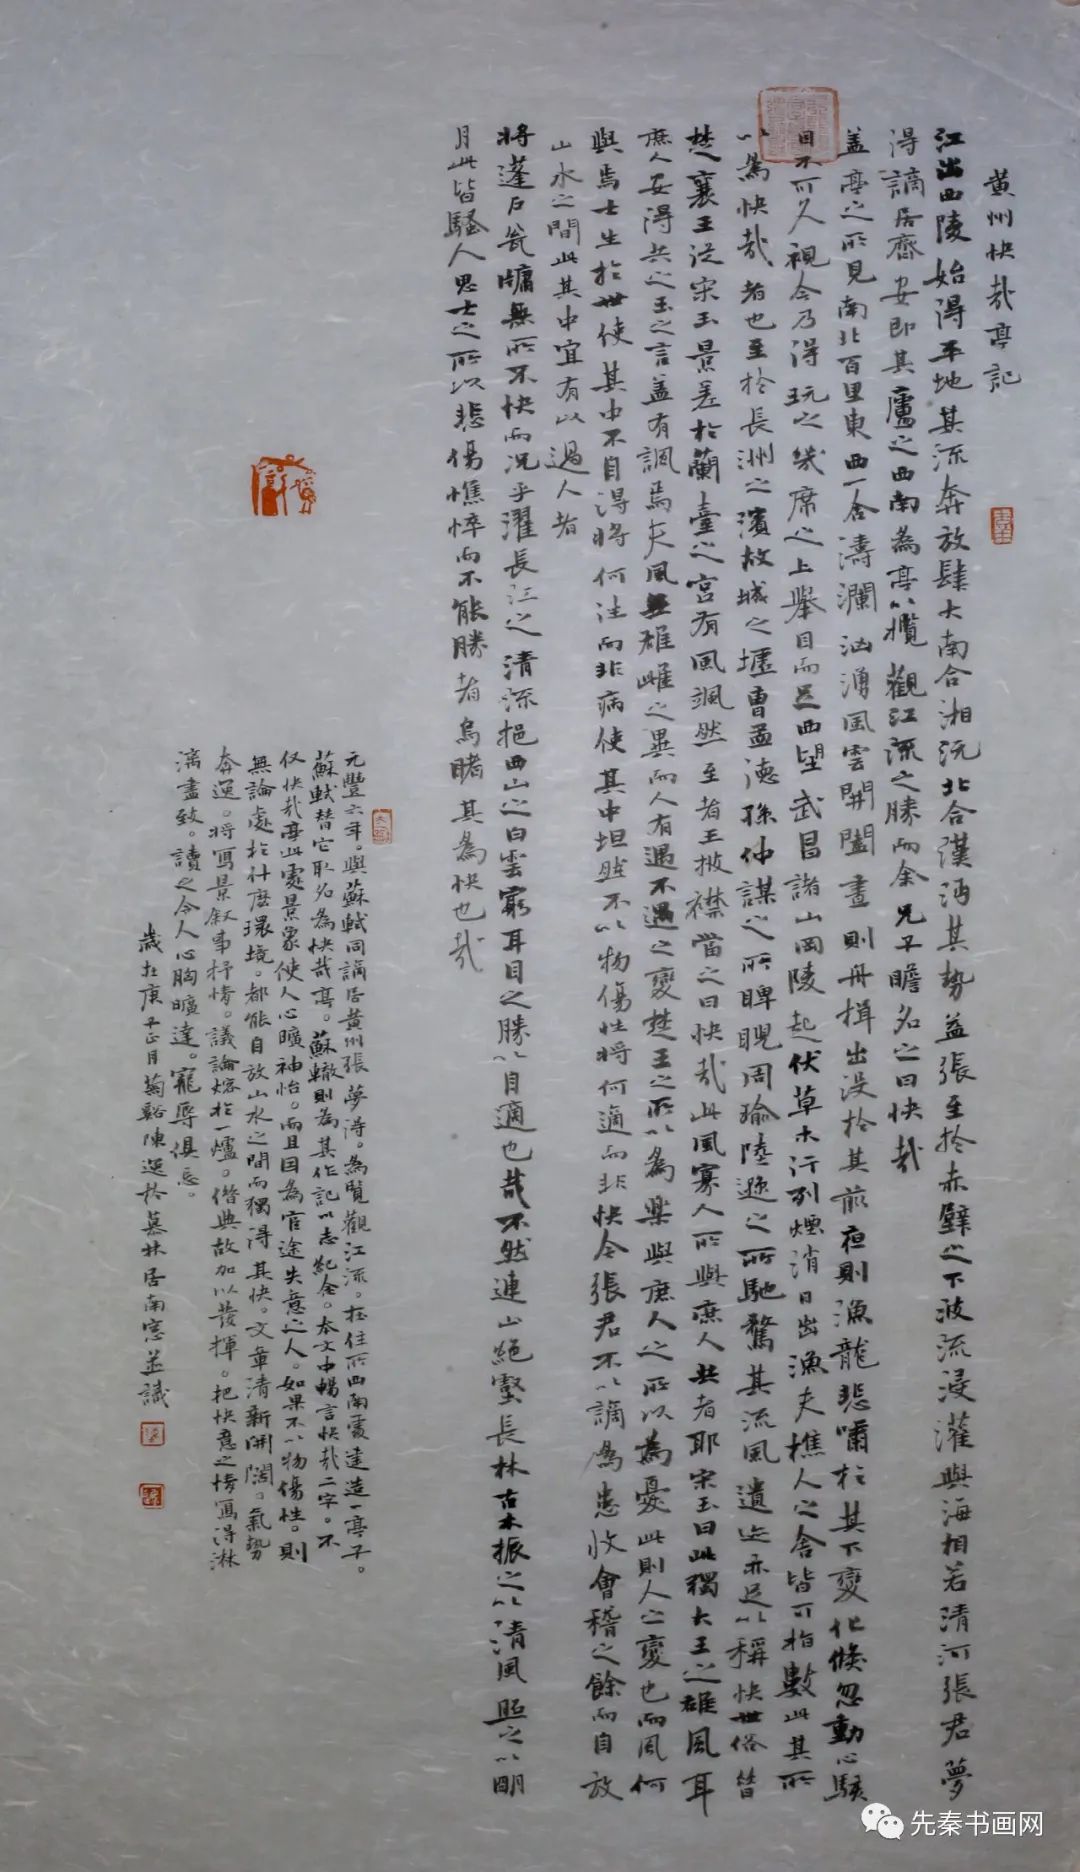 黃州快哉亭記
江出西陵始得平地其流奔放肆大南合湘沅北合漢沔其勢益張至於赤壁之下波流浸灌與海相若清河張君夢
得謫居齊安即其廬之西南為亭以攬觀江流之勝而余兄子瞻名之曰快哉
蓋亭之所見南北百里東西一舍濤瀾洶湧風雲開闔晝則舟楫出沒於其前夜則漁龍悲嘯於其下變化倏忽動心駭
目不可久視今乃得玩之几席之上舉目而足西望武昌諸山岡陵起伏草木行列煙消日出漁夫樵人之舍皆可指數此其所
以為快哉者也至於長洲之濱故城之墟曹孟德孫仲謀之所睥睨周瑜陸遜之所馳騖其流風遺迹亦足以稱快世俗昔
楚襄王從宋玉景差於蘭臺之宮有風颯然至者王披襟當之曰快哉此風寡人所與庶人共者耶宋玉曰此獨大王之雄風耳
庶人安得共之玉之言蓋有諷焉夫風無雄雌之異而人有遇不遇之變楚王之所以為樂與庶人之所以為憂此則人之變也而風何
與焉士生於世使其中不自得將何往而非病使其中坦然不以物傷性將何適而非快今張君不以謫為患收會稽之餘而自放
山水之間此其中宜有以過人者
將蓬戶瓮牖無所不快而況乎濯長江之清流挹西山之白雲窮耳目之勝以自適也哉不然連山絕壑長林古木振之以清風照之以明
月此皆騷人思士之所以悲傷憔悴而不能勝者烏睹其為快也哉
元豐六年。與蘇軾同謫居黃州張夢得。為覽觀江流。在住所西南處建造一亭子。
蘇軾替它取名為快哉亭。蘇轍則為其作記以志紀念。本文中暢言快哉二字。不
仅快哉亭此處景象使人心曠神怡。而且因為官途失意之人。如果不以物傷性。則
無論處於什麼環境。都能自放山水之間而獨得其快。文章清新開闊。氣勢
奔運。將寫景叙事抒情。議論熔於一爐。借典故加以發揮。把快意之情寫得淋
漓盡致。讀之令人心胸曠達。寵辱俱忘。
歲在庚子正月菊谿陳運於慕林居南窓並識
先秦书画网